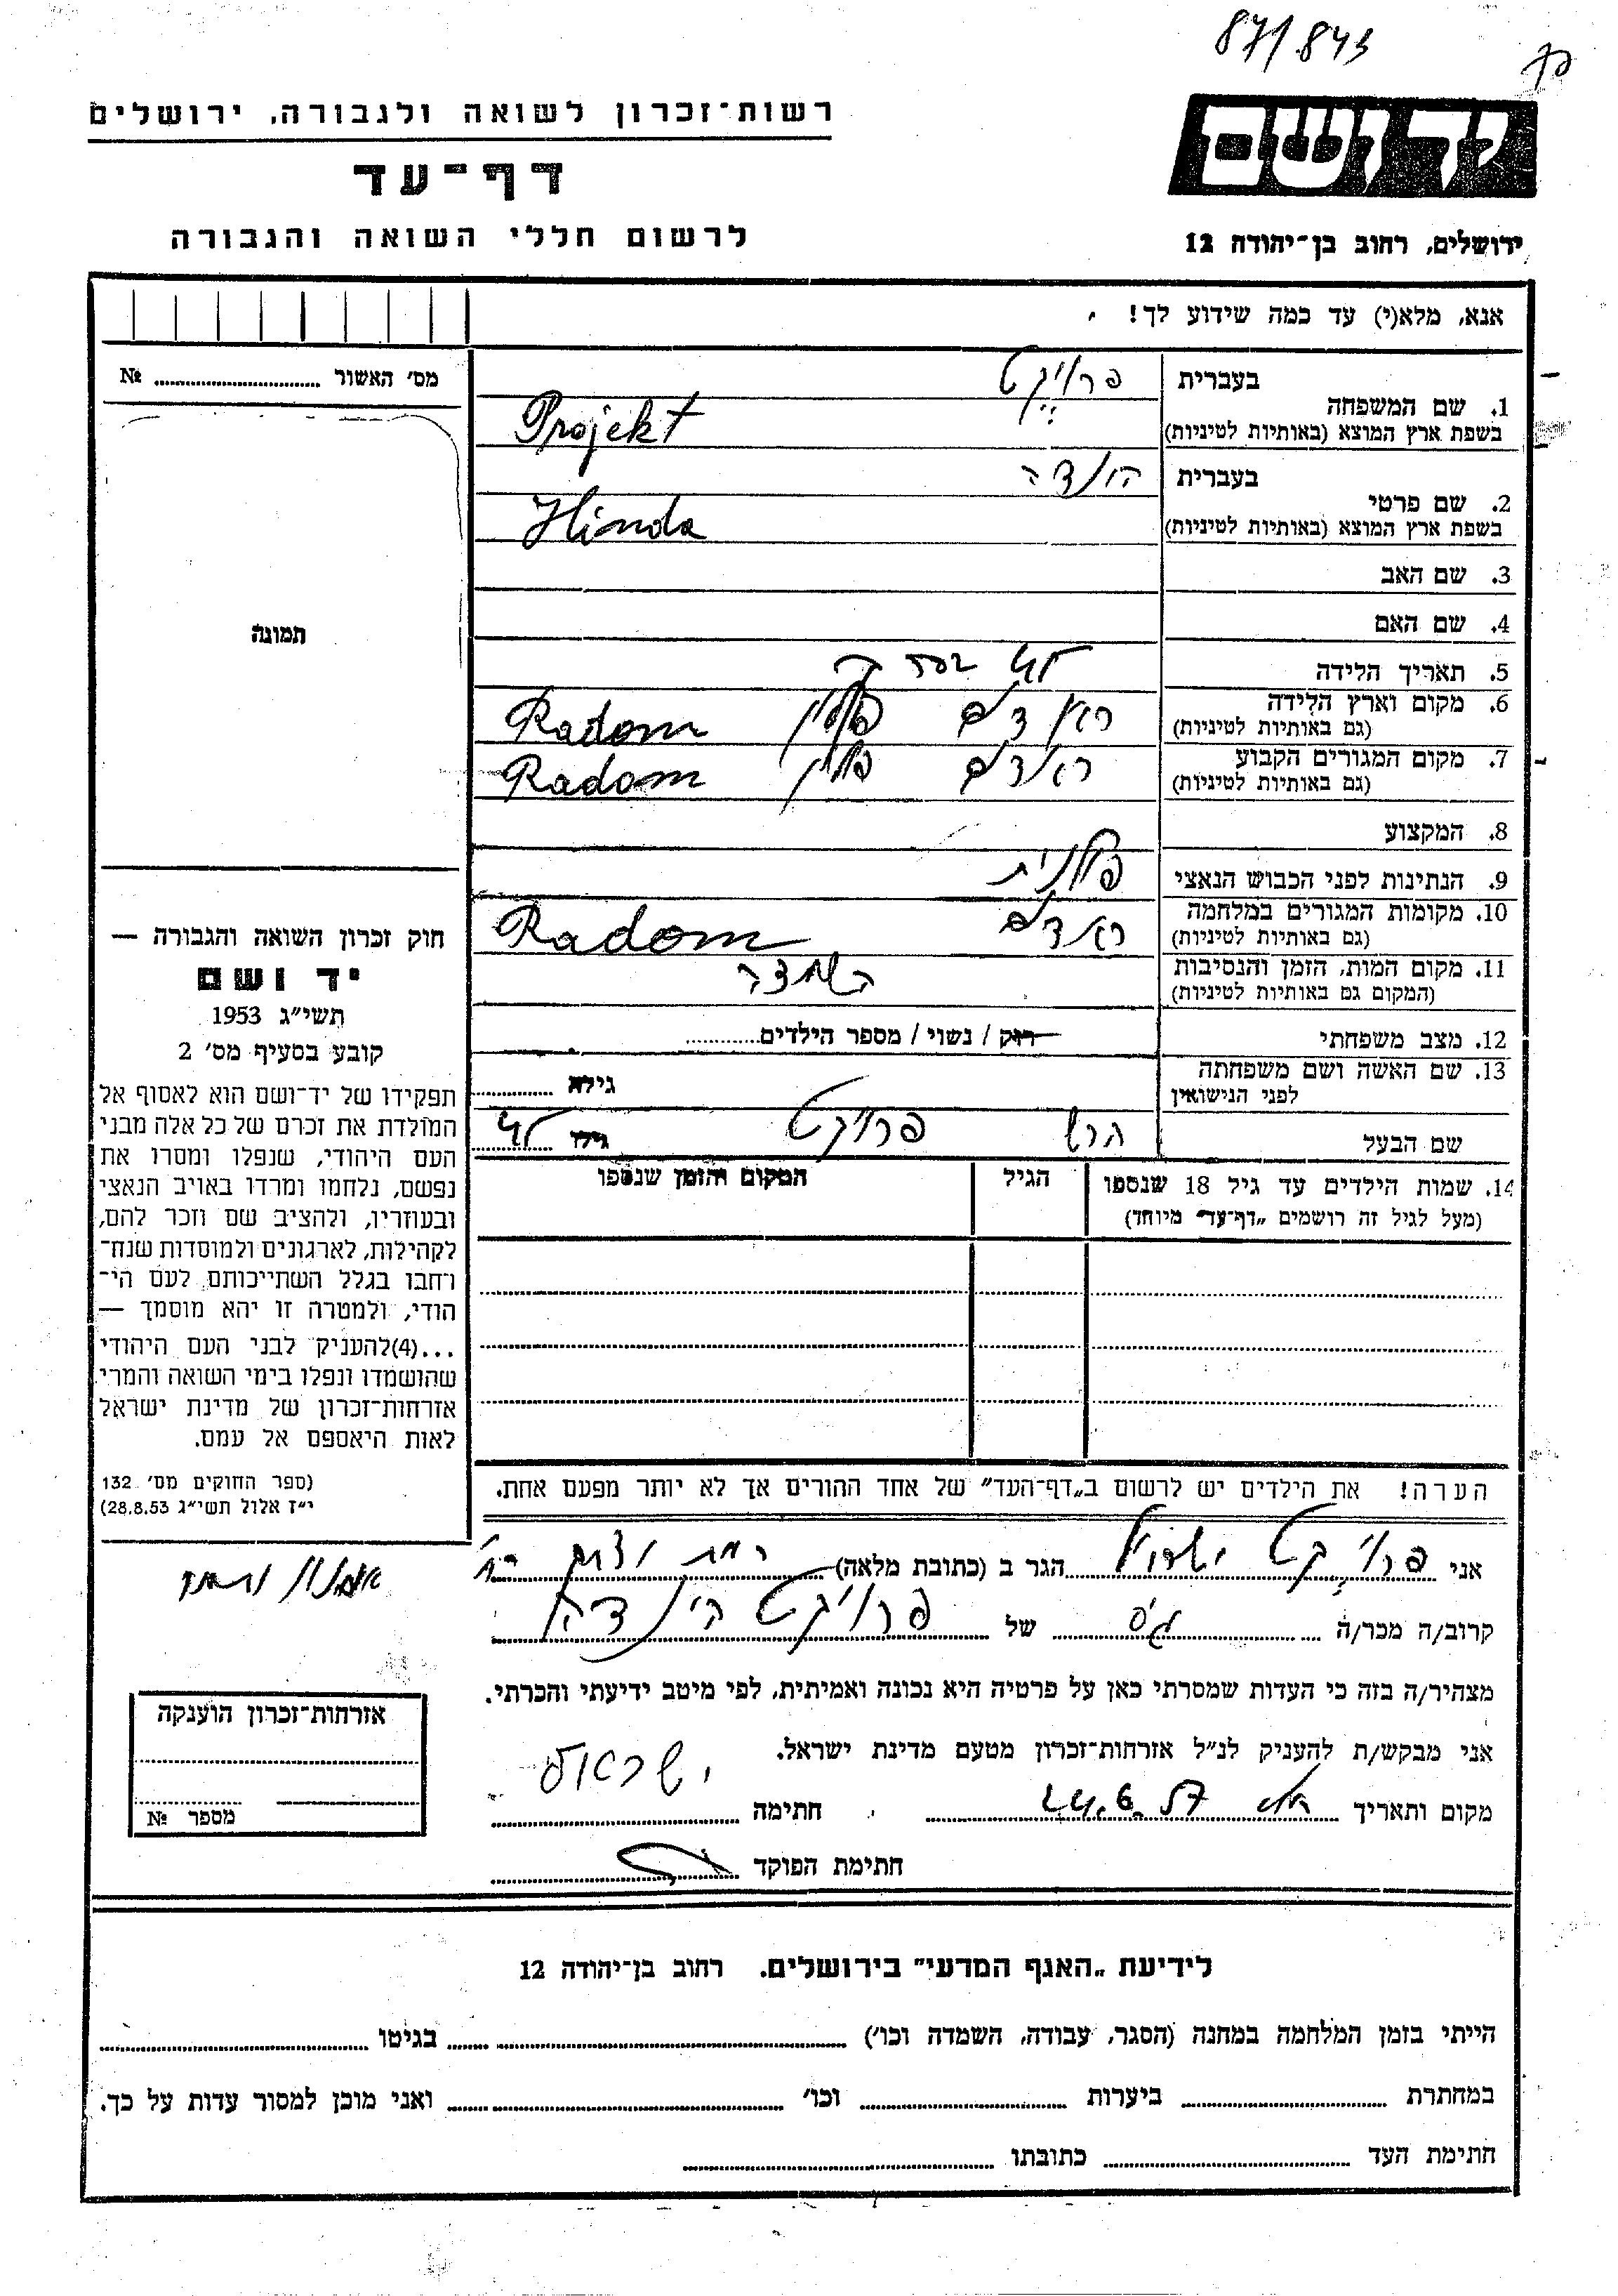 87/843
רשות־זכרון לשואה ולגבורה, ירושלים
יד ושם
דף־עד
לרשום חללי השואה והגבורה
ירושלים, רחוב בן־יהודה 12
אנא, מלא(י) עד כמה שידוע לך!
מס׳ האשור № ........
תמונה
בעברית פרויקט
1. שם המשפחה
בשפת ארץ המוצא (באותיות לטיניות) Projekt
בעברית הינדה
2. שם פרטי
בשפת ארץ המוצא (באותיות לטיניות) Hinda
3. שם האב
4. שם האם
5. תאריך הלידה
6. מקום וארץ הלידה ראדום פולין Radom
(גם באותיות לטיניות)
7. מקום המגורים הקבוע ראדום פולין Radom
(גם באותיות לטיניות)
8. המקצוע
9. הנתינות לפני הכבוש הנאצי פולנית
10. מקומות המגורים במלחמה ראדום Radom
(גם באותיות לטיניות)
11. מקום המות, הזמן והנסיבות השמדה
(המקום גם באותיות לטיניות)
12. מצב משפחתי רוק / נשוי / מספר הילדים........
13. שם האשה ושם משפחתה גילא ........
לפני הנישואין
שם הבעל הרש פרויקט גילו 45
14. שמות הילדים עד גיל 18 שנספו הגיל המקום והזמן שנספו
(מעל לגיל זה רושמים „דף־עד״ מיוחד)
הערה! את הילדים יש לרשום ב„דף־העד״ של אחד ההורים אך לא יותר מפעם אחת.
חוק זכרון השואה והגבורה —
יד ושם
תשי״ג 1953
קובע בסעיף מס׳ 2
תפקידו של יד־ושם הוא לאסוף אל
המולדת את זכרם של כל אלה מבני
העם היהודי, שנפלו ומסרו את
נפשם, נלחמו ומרדו באויב הנאצי
ובעוזריו, ולהציב שם וזכר להם,
לקהילות, לארגונים ולמוסדות שנח־
רחבו בגלל השתייכותם לעם הי־
הודי, ולמטרה זו יהא מוסמך —
...(4)להעניק לבני העם היהודי
שהושמדו ונפלו בימי השואה והמרי
אזרחות־זכרון של מדינת ישראל
לאות היאספם אל עמם.
(ספר החוקים מס׳ 132
י״ז אלול תשי״ג 28.8.53)
אני פרויקט ישראל הגר ב (כתובת מלאה) רמת
קרוב/ה מכר/ה גיס של פרויקט הינדה
מצהיר/ה בזה כי העדות שמסרתי כאן על פרטיה היא נכונה ואמיתית, לפי מיטב ידיעתי והכרתי.
אני מבקש/ת להעניק לנ״ל אזרחות־זכרון מטעם מדינת ישראל.
מקום ותאריך 24.6.57 חתימה ישראל
חתימת הפוקד
אזרחות־זכרון הוענקה
מספר №
לידיעת „האגף המדעי״ בירושלים. רחוב בן־יהודה 12
הייתי בזמן המלחמה במחנה (הסגר, עבודה, השמדה וכו׳) ........ בגיטו ........
במחתרת ........ ביערות ........ וכו׳ ........ ואני מוכן למסור עדות על כך.
חתימת העד ........ כתובתו ........